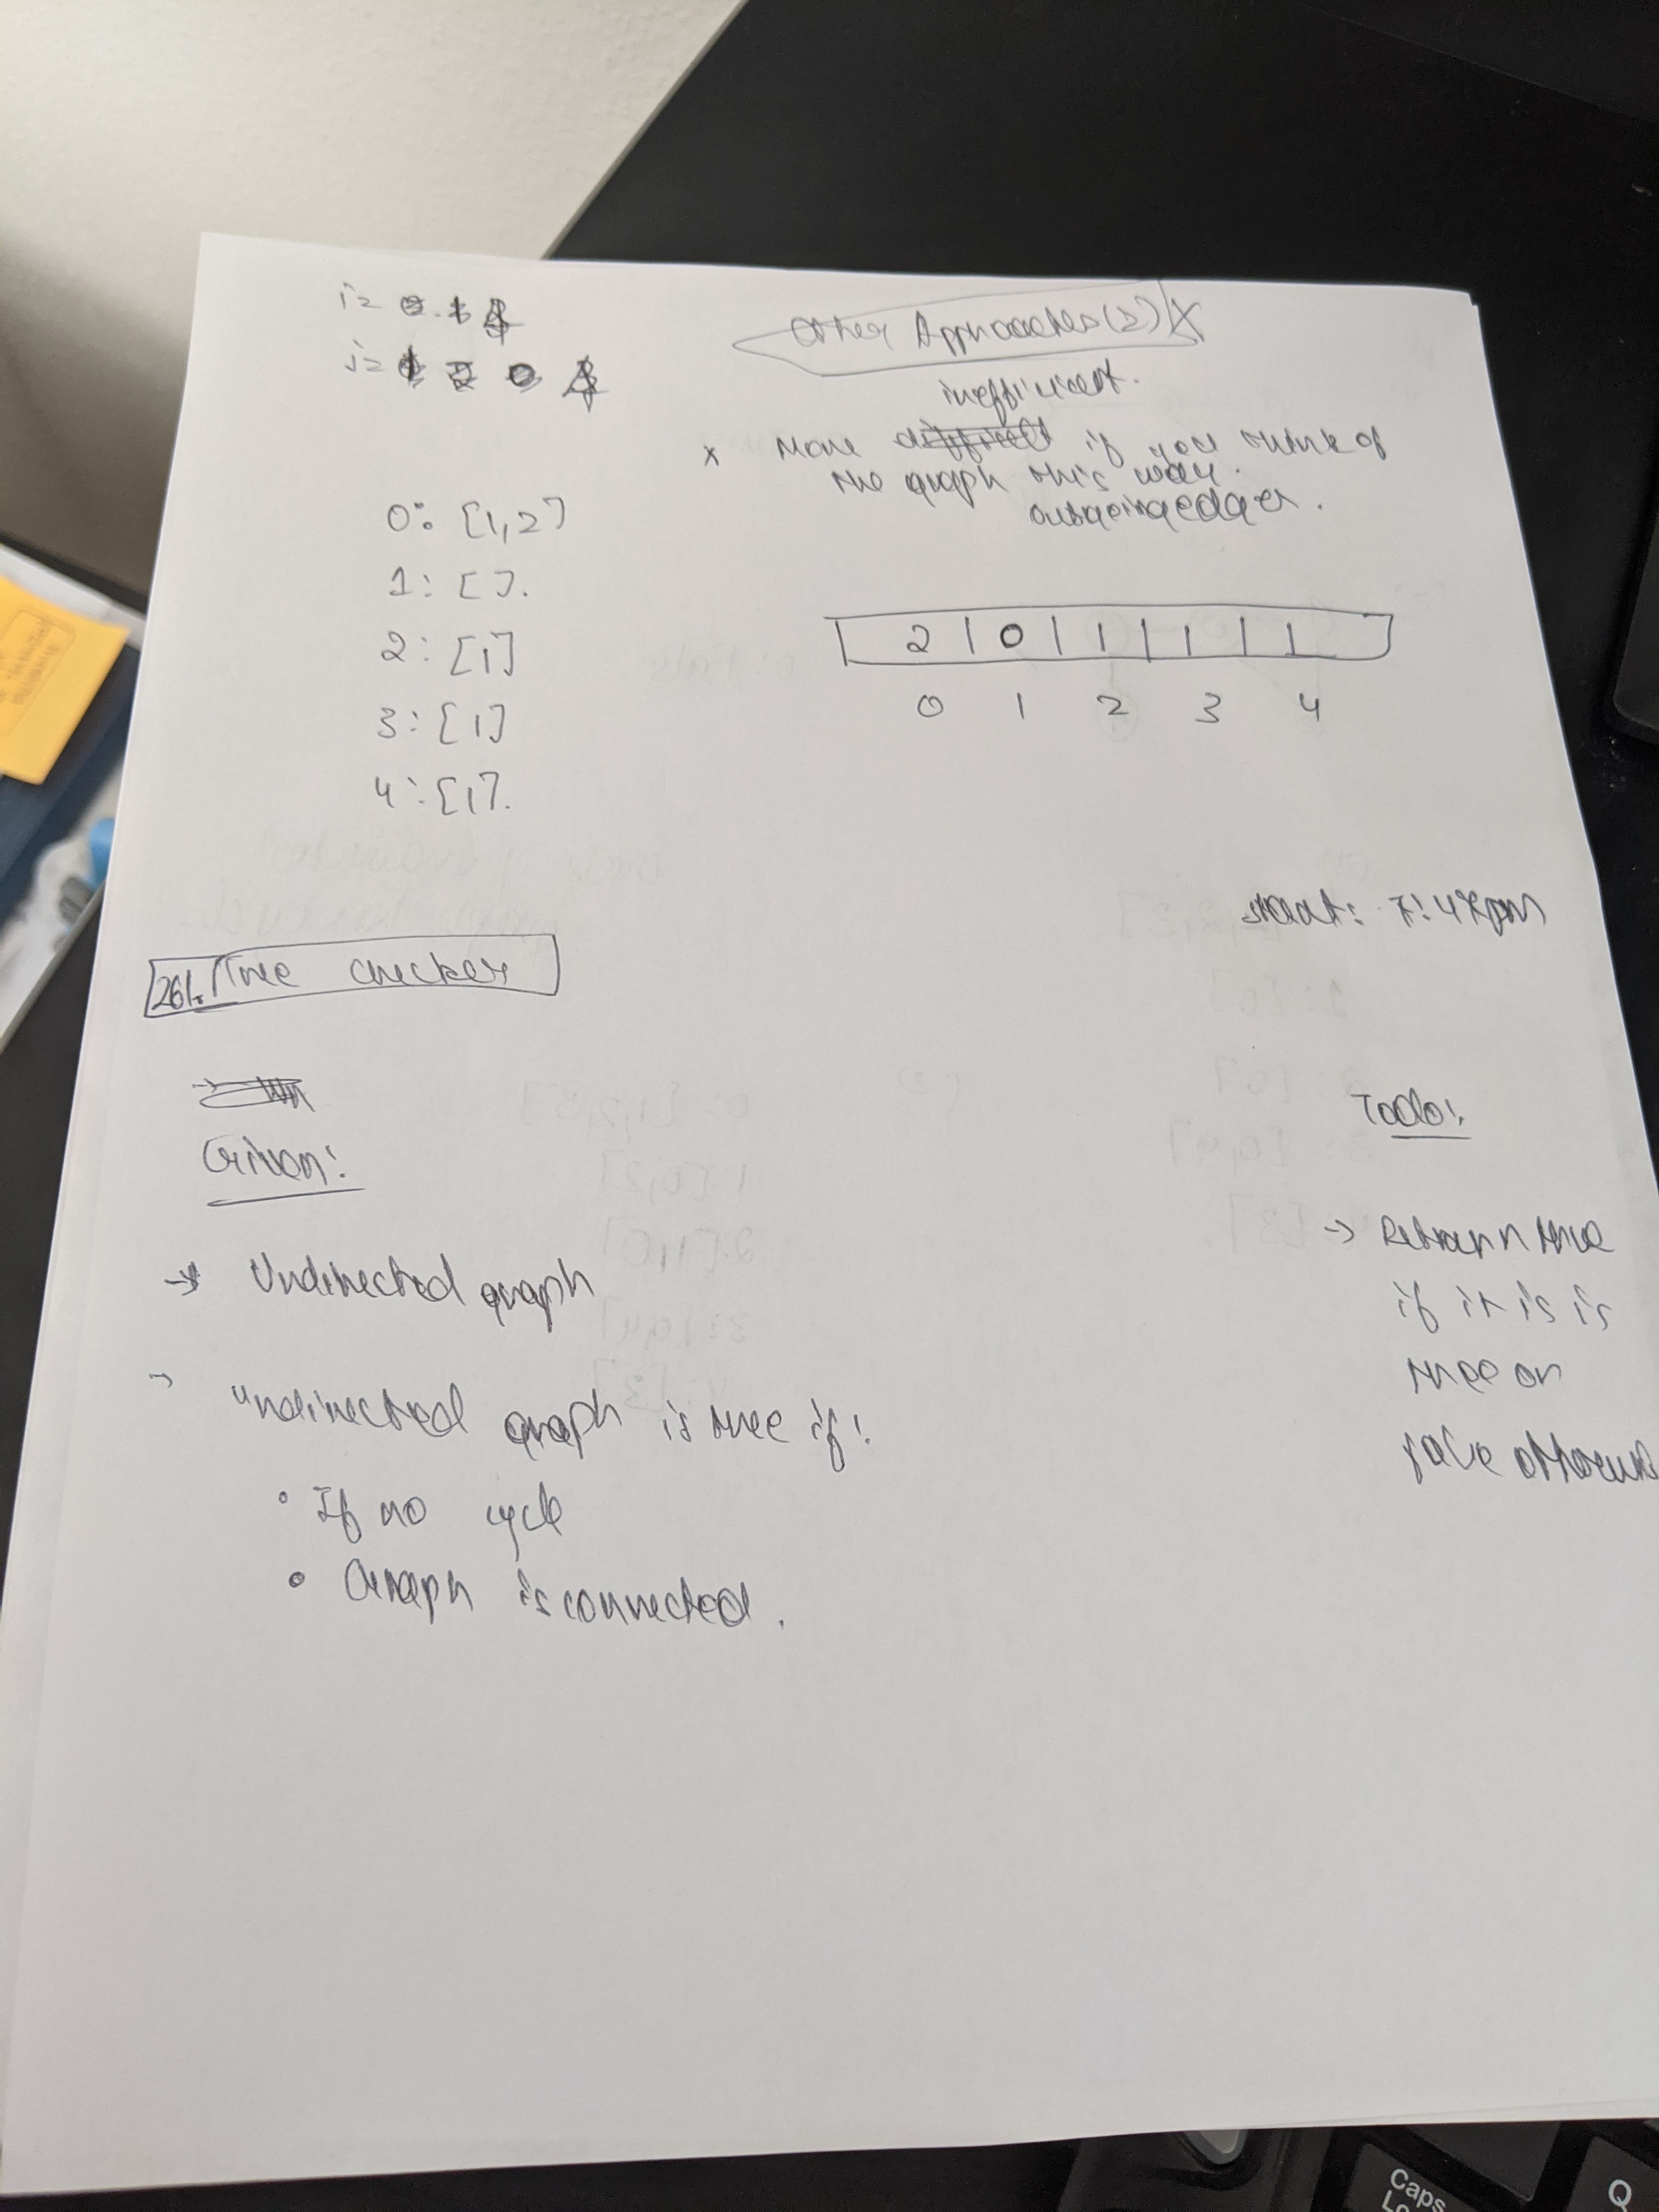 i =
j =
Other Approaches (2) X
inefficient.
x More difficult if you think of
the graph this way.
outgoing edges.
0: [1,2]
1: [ ].
2: [1]
3: [1]
4: [1].
2 | 0 | 1 | 1 | 1
0 1 2 3 4
start: 7:47pm
261. Tree checker
Given:
Todo:
→ Undirected graph
→ undirected graph is tree if:
• If no cycle
• Graph is connected.
→ Return true
if it is is
tree or
false otherwis
Caps
Q